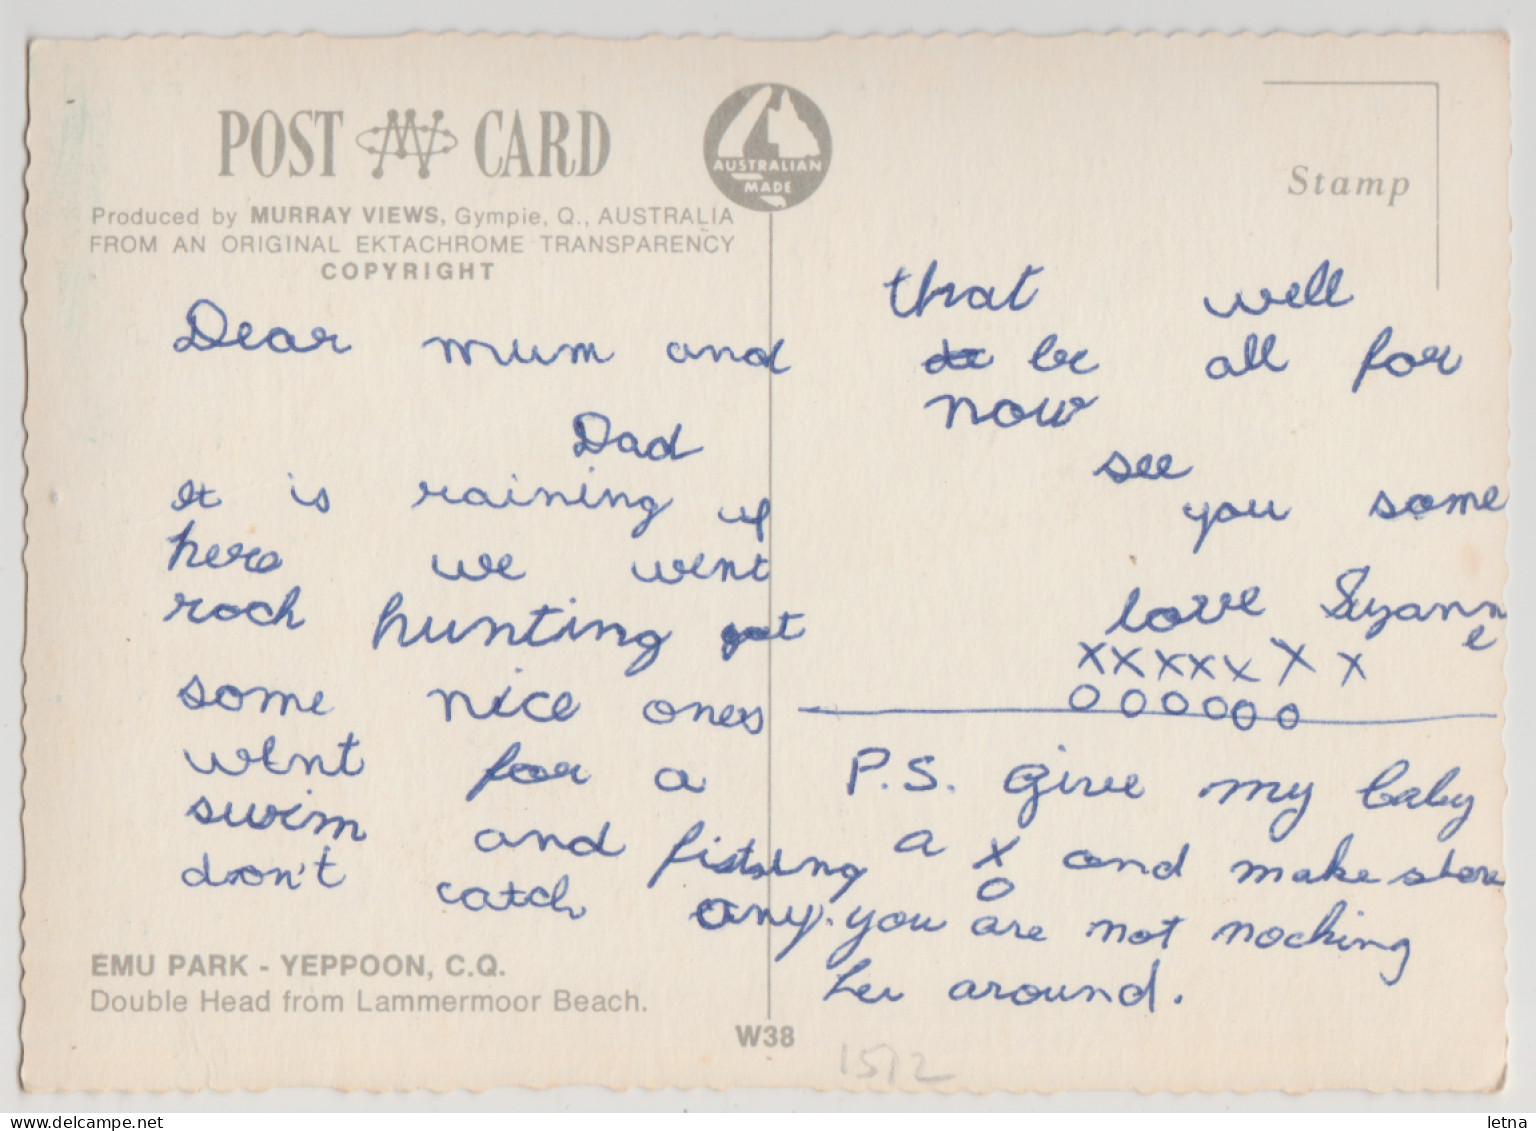 POST CARD
AUSTRALIAN
MADE
Produced by MURRAY VIEWS, Gympie, Q., AUSTRALIA
FROM AN ORIGINAL EKTACHROME TRANSPARENCY
COPYRIGHT
Stamp
Dear mum and
Dad
It is raining up
here we went
rock hunting got
some nice ones
went for a
swim and fishing
don't catch any.
that well
be all for
now
see
you some
love Suzann
e
xxxxxxx
oooooo
P.S. give my baby
a x and make shore
o
you are not nocking
her around.
EMU PARK - YEPPOON, C.Q.
Double Head from Lammermoor Beach.
W38
1512
letna
www.delcampe.net